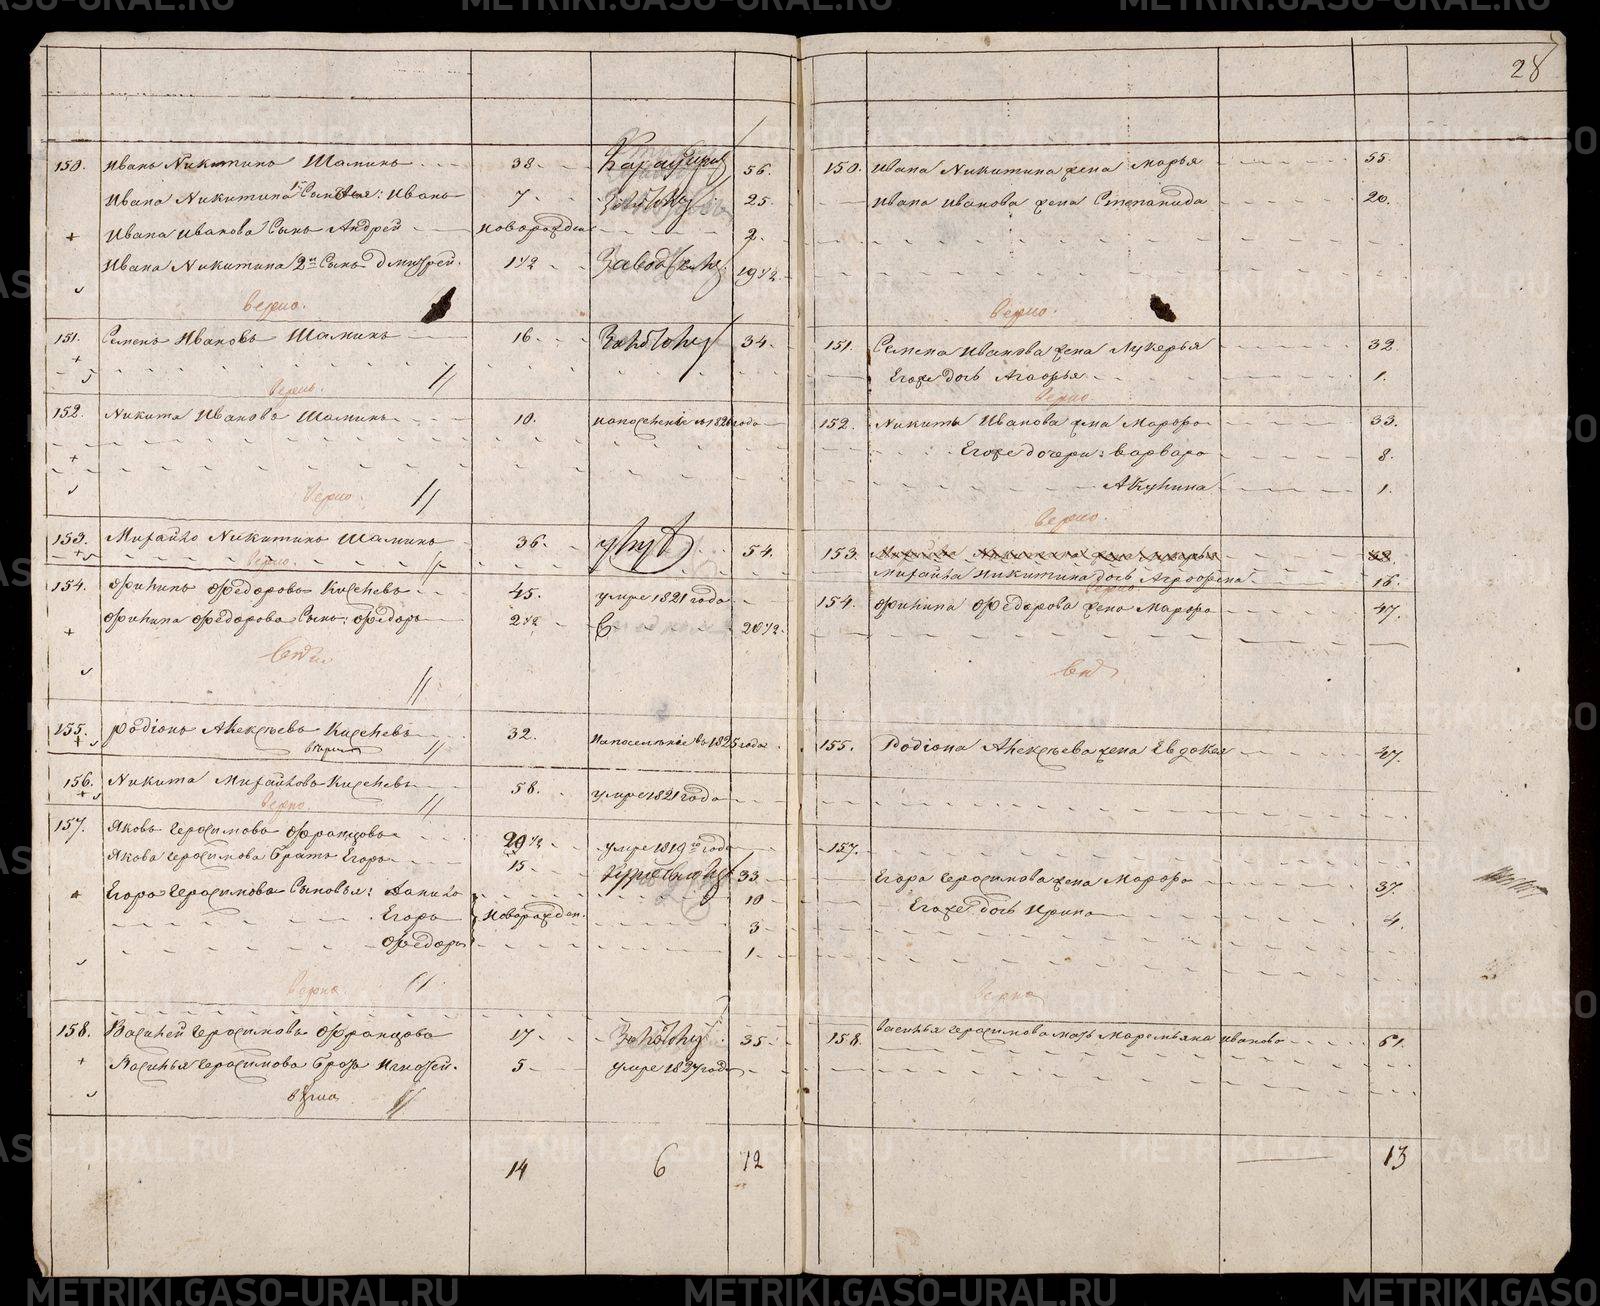 28
150. Иванъ Никитинъ Шаминъ 38 56.
Ивана Никитина 1й Сынъ: Иванъ 7 25
+ Ивана Иванова Сынъ Андрей новорожден 2.
Ивана Никитина 2й Сынъ Дмитрей. 1 1/2 19 1/2
верно.
151. Семенъ Ивановъ Шаминъ 16 34.
верно.
152. Никита Ивановъ Шаминъ 10. на поселеніе въ 1821 года
верно.
153. Михайло Никитинъ Шаминъ 36. 54.
верно.
154. Филипъ Федоровъ Киселевъ 45. умре 1821 года
Филипа Федорова Сынъ: Федоръ 2 1/2 20 1/2
155. Родіонъ Алексѣевъ Киселевъ 32. на поселеніе въ 1825 года
вѣрно
156. Никита Михайловъ Киселевъ 58. умре 1821 года
верно.
157. Яковъ Герасимовъ Францовъ 29 1/2 умре 1819го года
Якова Герасимова Братъ Егоръ 15 33
+ Егора Герасимова Сыновья: Данило 10
Егоръ Новорожден. 3
Федоръ 1
верно
158. Василей Герасимовъ Францовъ 17 35
+ Василья Герасимова братъ Игнатей. 5 умре 1837 года
вѣрно
14 6 12
150. Ивана Никитина жена Марья 55.
Ивана Иванова жена Степанида 20.
верно.
151. Семена Иванова жена Лукерья 32
Егоже дочь Агафья 1.
верно
152. Никиты Иванова жена Марфа 33.
Егоже дочери: Варвара 8.
Акулина 1.
верно.
153.
Михайла Никитина дочь Аграфена 16.
верно
154. Филипа Федорова жена Марфа 47.
155. Родіона Алексѣева жена Евдокея 47.
157.
Егора Герасимова жена Марфа 37.
Егоже дочь Ирина 4.
верно
158. Василья Герасимова мать Маремьяна Иванова 61.
13
METRIKI.GASO-URAL.RU